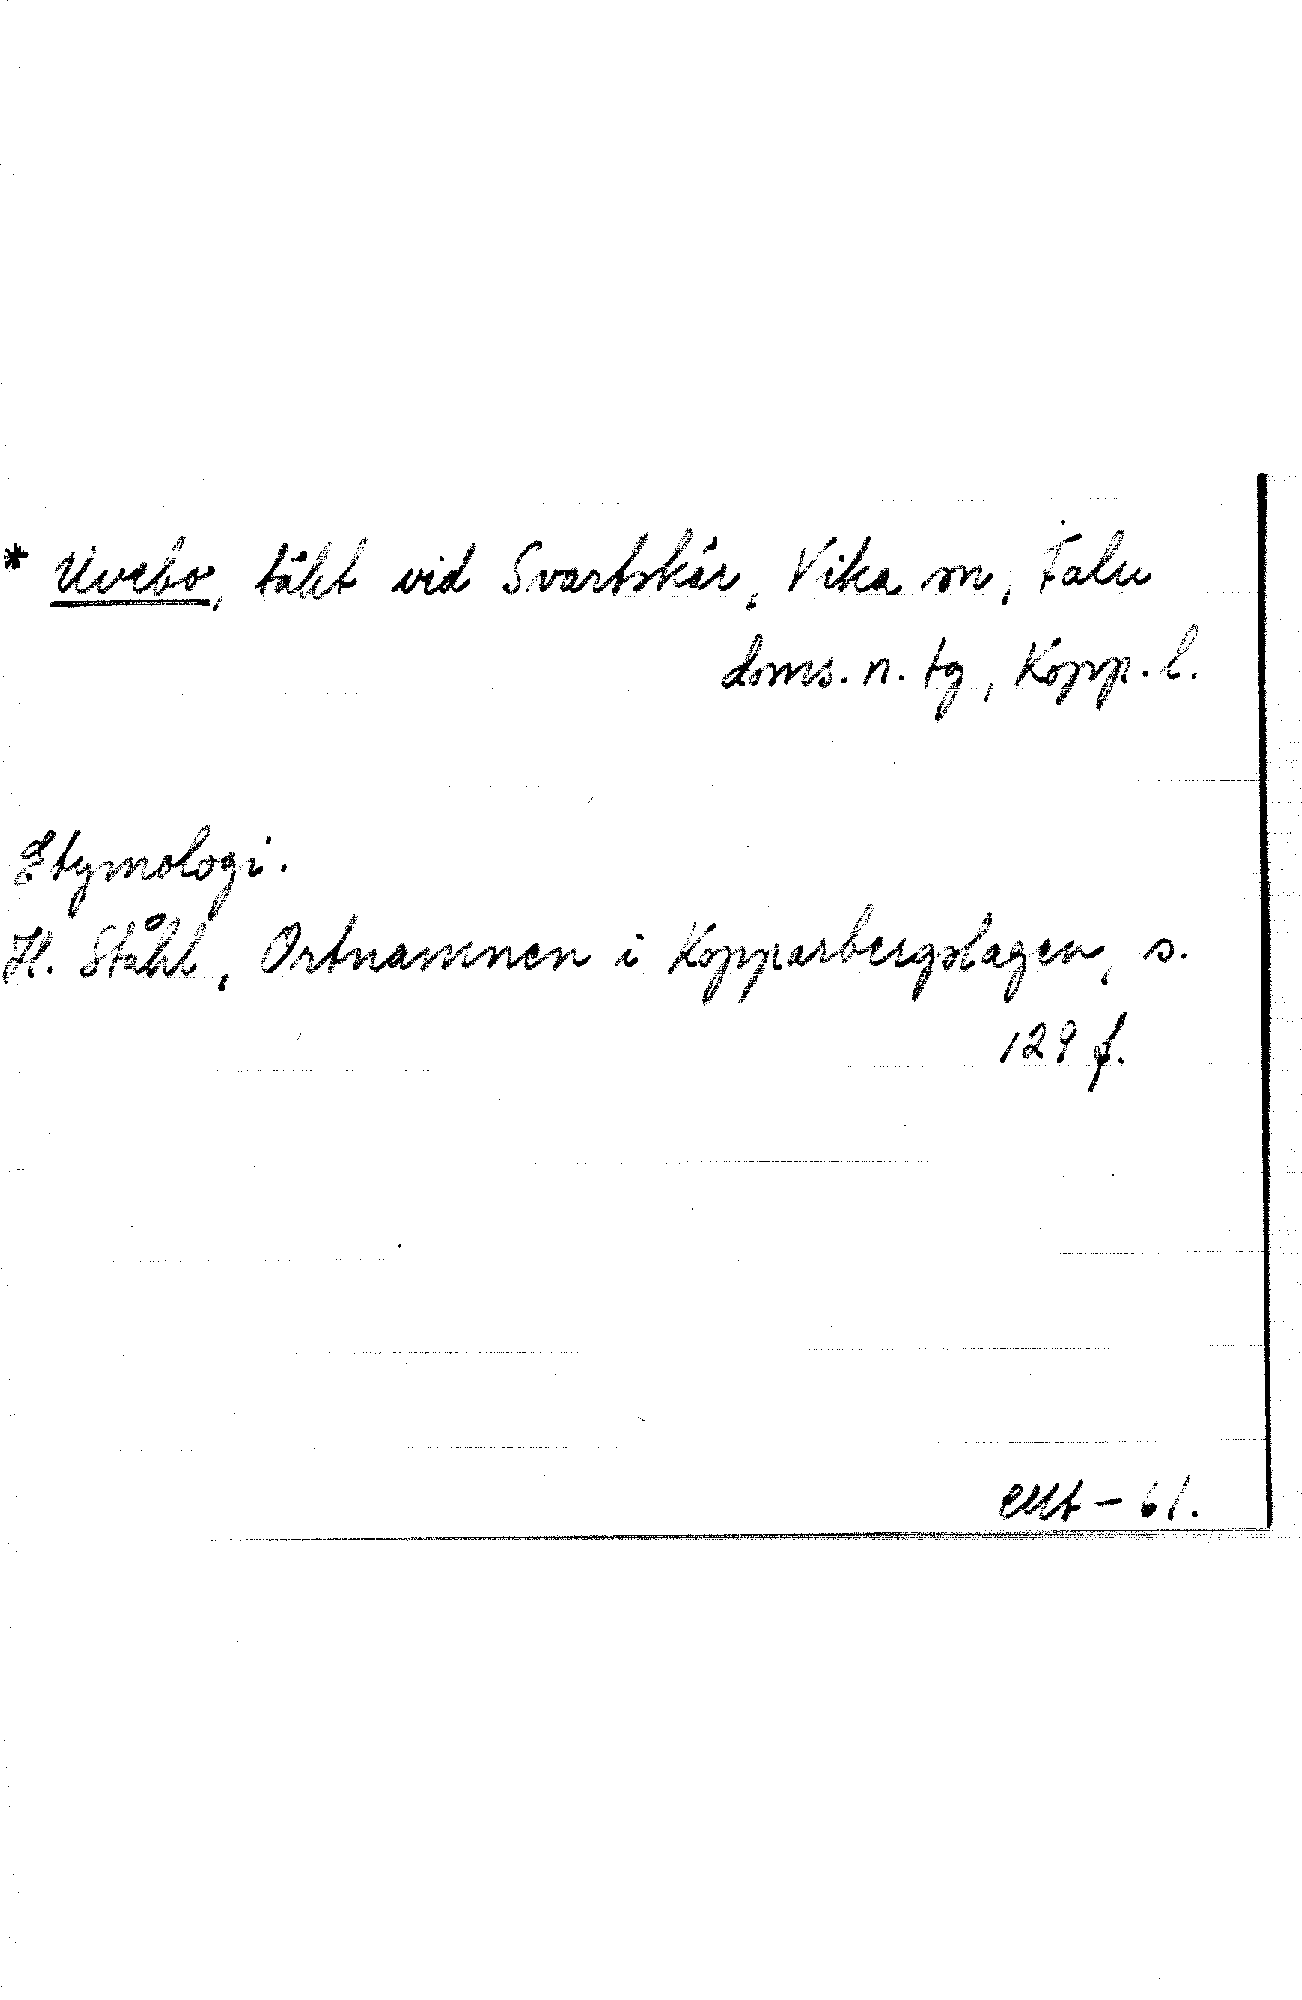 * Uvebo, täkt vid Svartskär, Vika sn, Falu
doms. n. tg, Kopp. l.
Etymologi.
H. Ståhl, Ortnamnen i Kopparbergslagen, s.
129 f.
- 61.